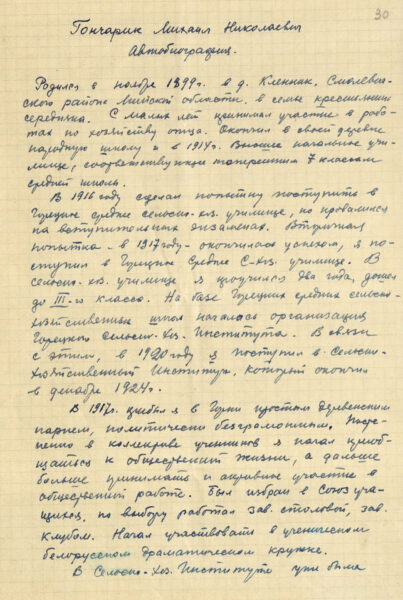 30
Гончарик Михаил Николаевич
Автобиография.
Родился в ноябре 1899 г. в д. Кленник, Смолевич-
ского района Минской области в семье крестьянина
середняка. С малых лет принимал участие в рабо-
тах по хозяйству отца. Окончил в своей деревне
народную школу и в 1914 г. Высшее начальное учи-
лище, соответствующее теперешним 7 классам
средней школы.
В 1916 году сделал попытку поступить в
Горецкое среднее сельско-хоз. училище, но провалился
на вступительных экзаменах. Вторичная
попытка в 1917 году - окончилась успехом, я по-
ступил в Горецкое среднее с-хоз. училище. В
сельско-хоз. училище я проучился два года, дошел
до III-го класса. На базе Горецких средних сельско-
хозяйственных школ началась организация
Горецкого сельско-хоз. Института. В связи
с этим, в 1920 году я поступил в Сельско-
хозяйственный Институт, который окончил
в декабре 1924 г.
В 1917 г. прибыл я в Горки простым деревенским
парнем, политически безграмотным. Посте-
пенно в коллективе учеников я начал приоб-
щаться к общественной жизни, а дальше
больше принимать и активное участие в
общественной работе. Был избран в Союз уча-
щихся, по выбору работал зав. столовой, зав.
клубом. Начал участвовать в ученическом
белорусском драматическом кружке.
В Сельско-Хоз. Институте уже была